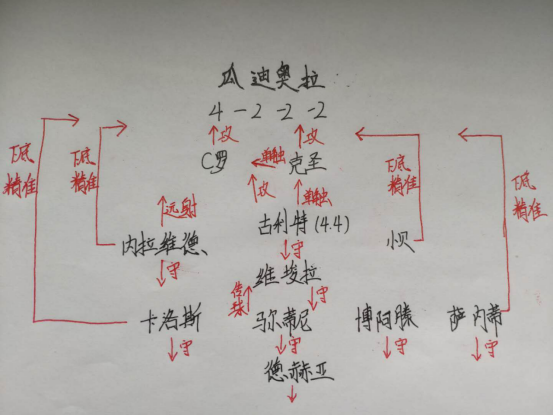 瓜迪奥拉
4-2-2-2
攻 攻
C罗 单触 克圣
下底精准 下底精准 下底精准 下底精准
攻 单触
远射 古利特(4.4)
内拉维德 守 小贝
守 维埃拉
传球 守
卡洛斯 马尔蒂尼 博阿滕 萨内蒂
守 守 守 守
德赫亚